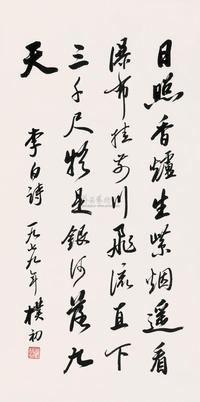 日照香爐生紫烟遥看
瀑布挂前川飛流直下
三千尺疑是銀河落九
天
李白詩 一九七九年 樸初